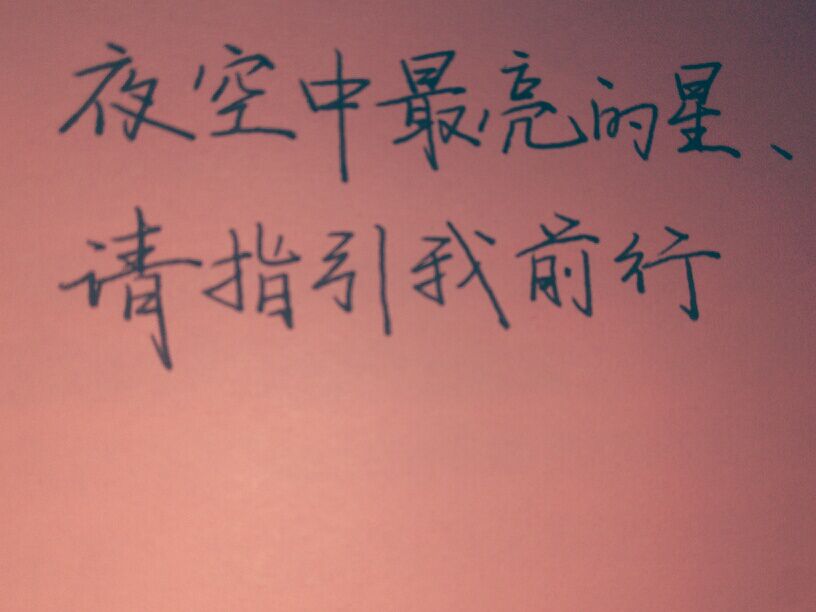 夜空中最亮的星、
请指引我前行